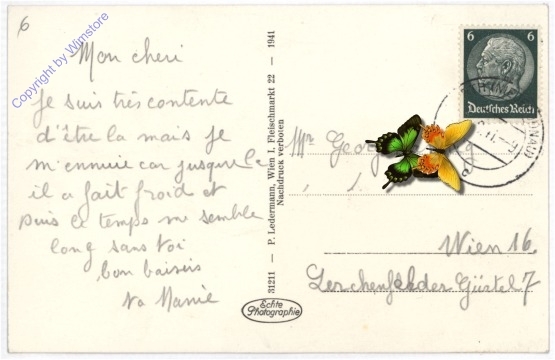 6
Copyright by Wimstore
Mon cheri
Je suis très contente
d'être la mais je
m'ennuie car jusque la
il a fait froid et
puis ce temps me semble
long sans toi
bon baisers
ta Mamie
31211 — P. Ledermann, Wien I. Fleischmarkt 22 — 1941
Nachdruck verboten
Echte
Photographie
6 6
Deutsches Reich
Mr Georg
Wien 16.
Lerchenfelder Gürtel 7